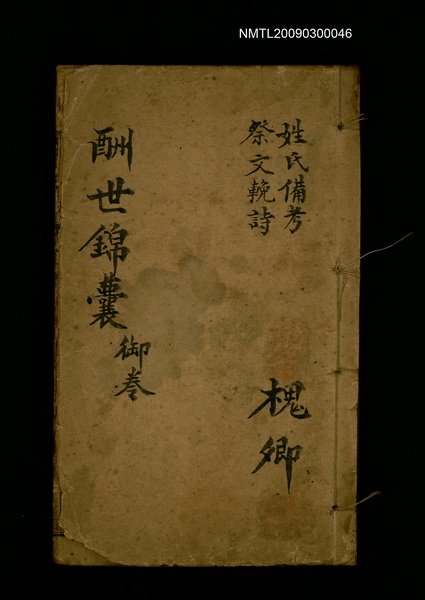 NMTL20090300046
姓氏備考
祭文輓詩
槐卿
酬世錦囊
御卷